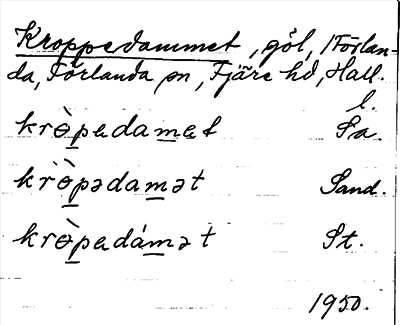 Kroppedammet, göl, /Förlan-
da, Förlanda sn, Fjäre hd, Hall. l.
krɵ̀padamet Sa.
krɵ̀pədamət Sand.
krɵ̀padámət St.
1950.